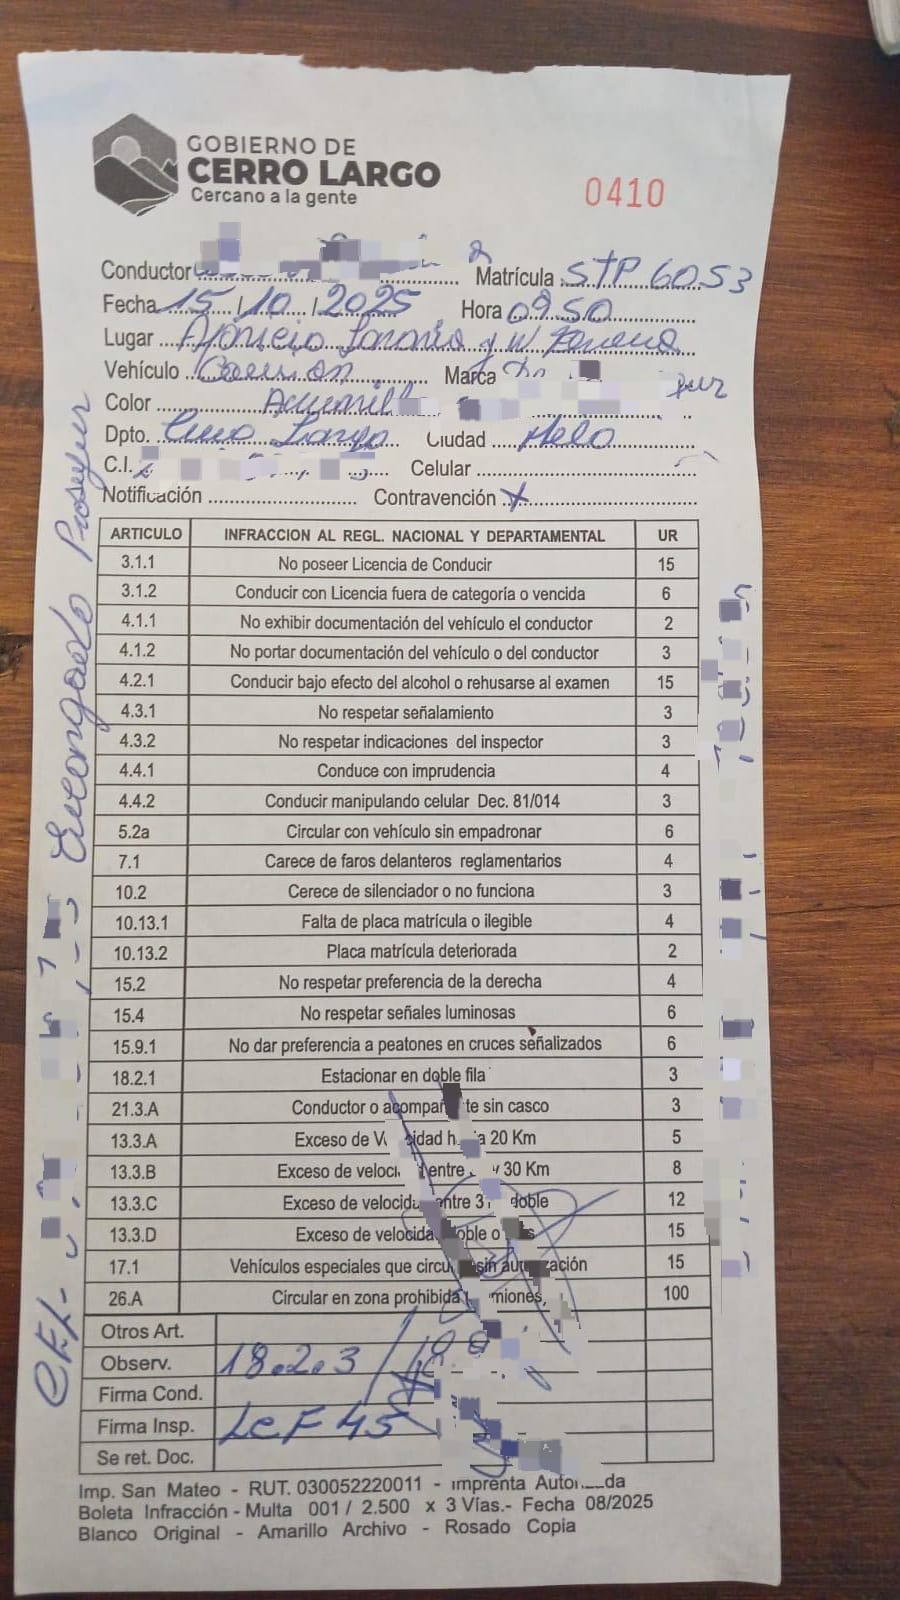 GOBIERNO DE
CERRO LARGO
Cercano a la gente
0410
Conductor
Matrícula STP 6053
Fecha 15/10/2025 Hora 09.50
Lugar Aparicio Saravia y W
Vehículo Camión Marca
Color
Dpto. Cerro Largo Ciudad Melo
C.I. Celular
Notificación Contravención X
ARTICULO INFRACCION AL REGL. NACIONAL Y DEPARTAMENTAL UR
3.1.1 No poseer Licencia de Conducir 15
3.1.2 Conducir con Licencia fuera de categoría o vencida 6
4.1.1 No exhibir documentación del vehículo el conductor 2
4.1.2 No portar documentación del vehículo o del conductor 3
4.2.1 Conducir bajo efecto del alcohol o rehusarse al examen 15
4.3.1 No respetar señalamiento 3
4.3.2 No respetar indicaciones del inspector 3
4.4.1 Conduce con imprudencia 4
4.4.2 Conducir manipulando celular Dec. 81/014 3
5.2a Circular con vehículo sin empadronar 6
7.1 Carece de faros delanteros reglamentarios 4
10.2 Cerece de silenciador o no funciona 3
10.13.1 Falta de placa matrícula o ilegible 4
10.13.2 Placa matrícula deteriorada 2
15.2 No respetar preferencia de la derecha 4
15.4 No respetar señales luminosas 6
15.9.1 No dar preferencia a peatones en cruces señalizados 6
18.2.1 Estacionar en doble fila 3
21.3.A Conductor o sin casco 3
13.3.A Exceso de 20 Km 5
13.3.B Exceso de entre y 30 Km 8
13.3.C Exceso de entre doble 12
13.3.D Exceso de doble o 15
17.1 Vehículos especiales que sin 15
26.A Circular en zona prohibida 100
Otros Art.
Observ. 18.2.3
Firma Cond.
Firma Insp.
Se ret. Doc.
Imp. San Mateo - RUT. 030052220011 - Imprenta
Boleta Infracción - Multa 001 / 2.500 x 3 Vías.- Fecha 08/2025
Blanco Original - Amarillo Archivo - Rosado Copia
Encargado Proseyur